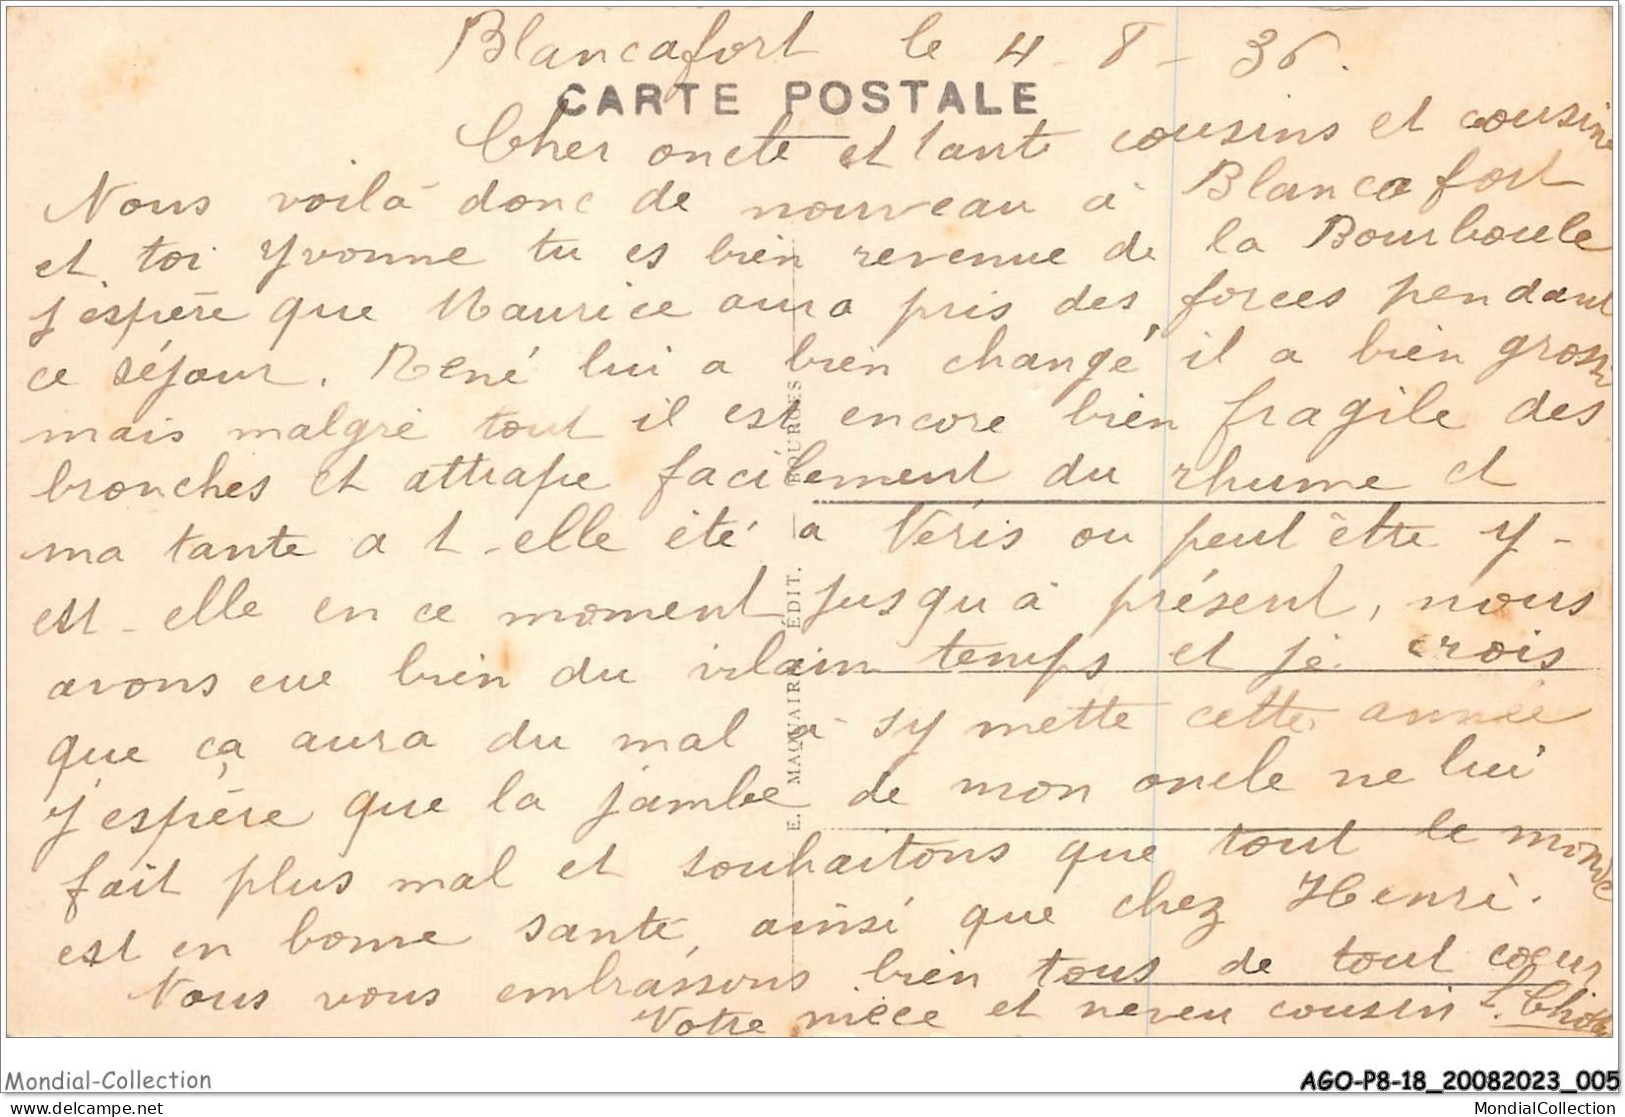 Blancafort le 4-8-36.
CARTE POSTALE
Cher oncle et tante cousins et cousine
Nous voilà donc de nouveau à Blancafort
et toi Yvonne tu es bien revenue de la Bourboule
j'espère que Maurice aura pris des forces pendant
ce séjour. René lui a bien changé il a bien grossi
mais malgré tout il est encore bien fragile des
bronches et attrape facilement du rhume et
ma tante a t-elle été a Néris ou peut être y-
est-elle en ce moment jusqu'à présent, nous
avons eue bien du vilain temps et je crois
que ça aura du mal à sy mette cette année
j'espère que la jambe de mon oncle ne lui
fait plus mal et souhaitons que tout le monde
est en bonne santé, ainsi que chez Henri.
Nous vous embrassons bien tous de tout coeur
Votre nièce et neveu cousin
E. MAQUAIRE ÉDIT. — BOURGES
Mondial-Collection
AGO-P8-18_20082023_005
delcampe.net
MondialCollection